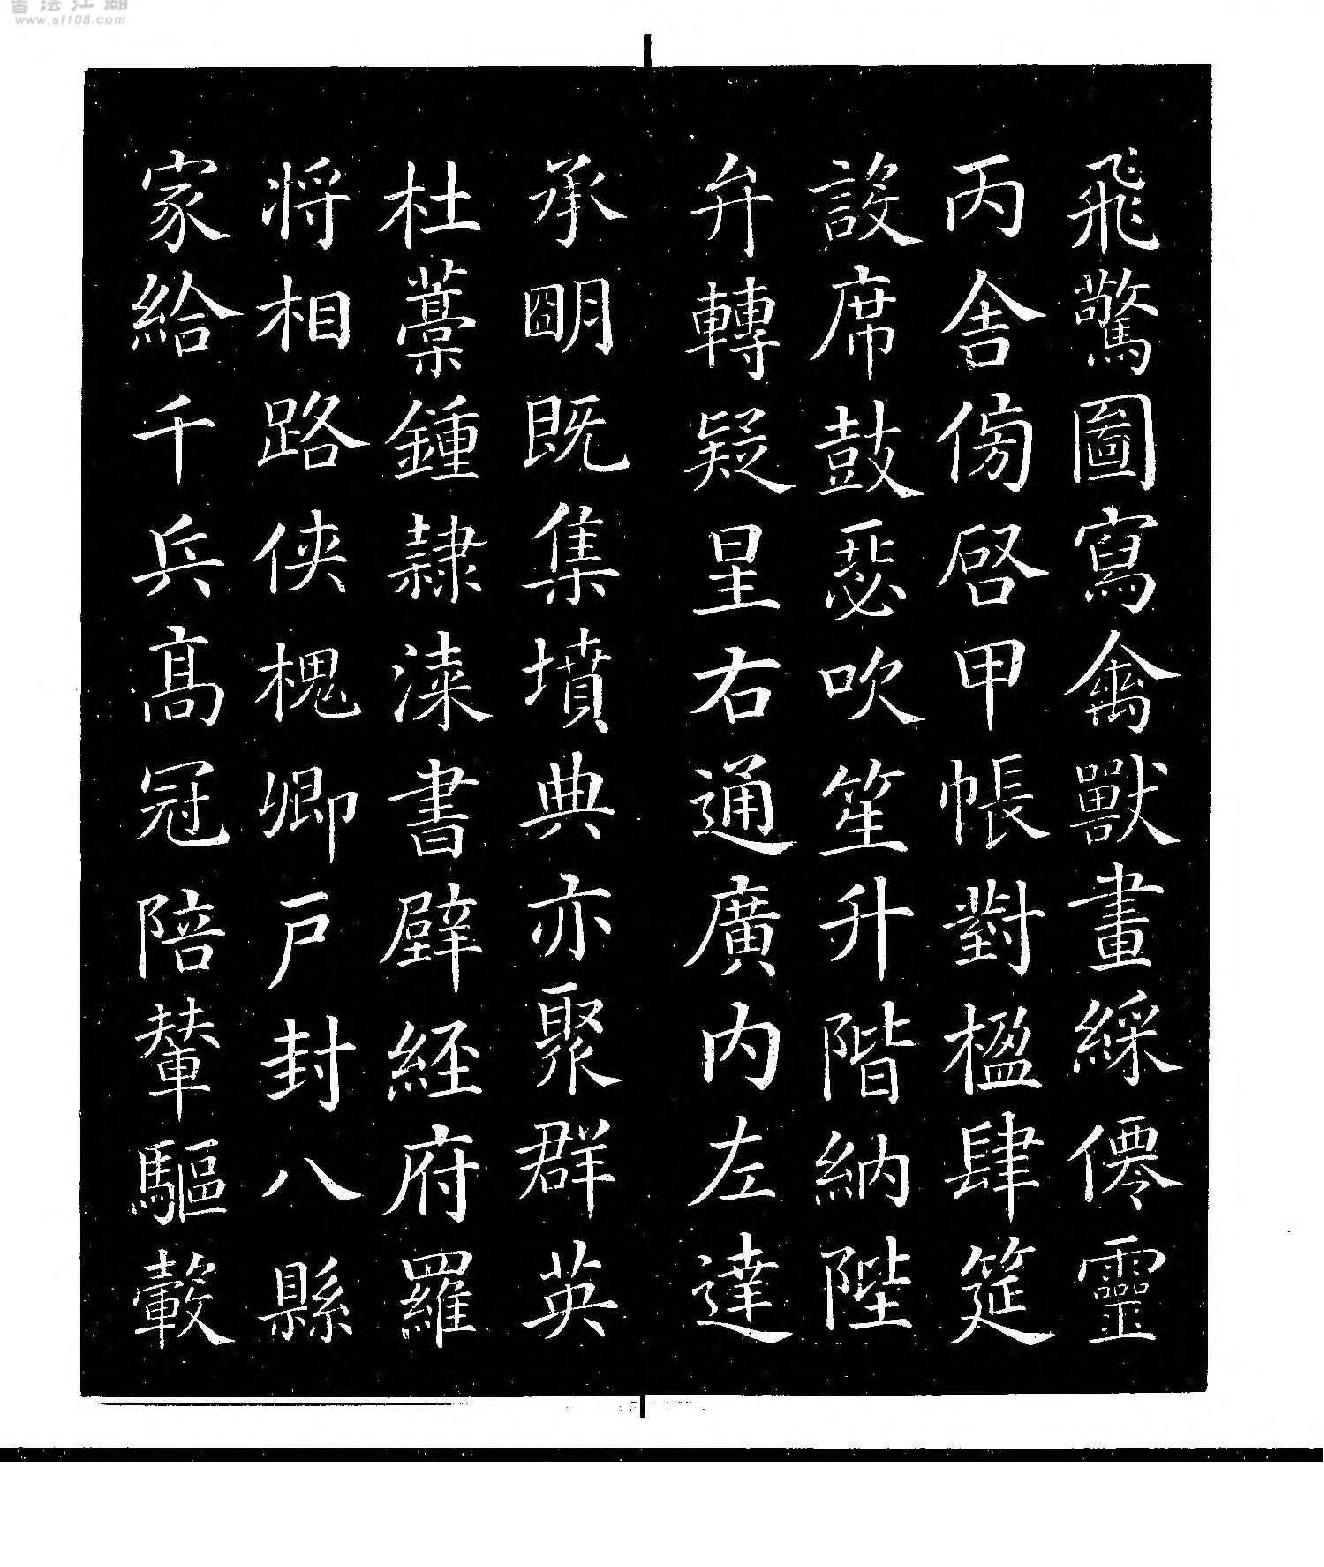 書法江湖
www.sf108.com
飛驚圖寫禽獸畫綵僊靈
丙舍傍啓甲帳對楹肆筵
設席鼓瑟吹笙升階納陛
弁轉疑星右通廣内左達
承明既集墳典亦聚群英
杜藁鍾隸漆書壁經府羅
将相路俠槐卿戶封八縣
家給千兵高冠陪輦驅轂